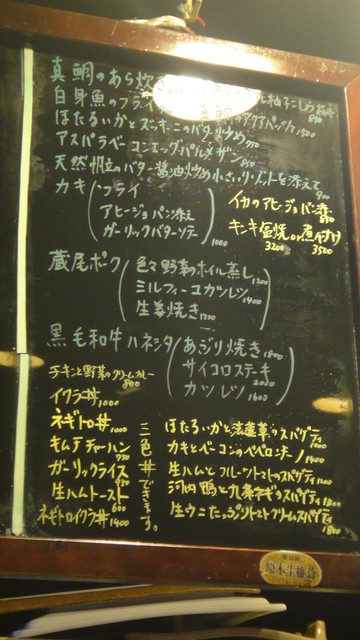 真鯛のあら炊き
白身魚のフライ
アクアパッツァ 1500
ほたるいかとズッキーニのバター炒め
アスパラベーコンエッグパルメザン 850
天然帆立のバター醤油炒め小さいリゾットを添えて 900
カキ
フライ
アヒージョパン添え
ガーリックバターソテー
1000
イカのアヒージョパン添 850
キンキ塩焼 or 煮付け
3200 3500
蔵尾ポーク
色々野菜のホイル蒸し 1200
ミルフィーユカツレツ 1400
生姜焼き 1200
黒毛和牛ハネシタ
あぶり焼き 1800
サイコロステーキ 2000
カツレツ 1600
チキンと野菜のクリームカレー 800
イクラ丼 1000
ネギトロ丼 1000
キムチチャーハン 950
ガーリックライス 950
生ハムトースト 600
ネギトロイクラ丼 1400
三色丼できます。
ほたるいかと法蓮草のスパゲティ 1000
カキとベーコンのペペロンチーノ 1400
生ハムとフルーツトマトのスパゲティ 1200
河内鴨と九条ネギのスパゲティ 1200
生ウニたっぷりトマトクリームスパゲティ 1800
原木生椎茸